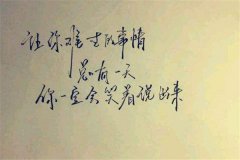 让你难过的事情
总有一天
你一定会笑着说出来